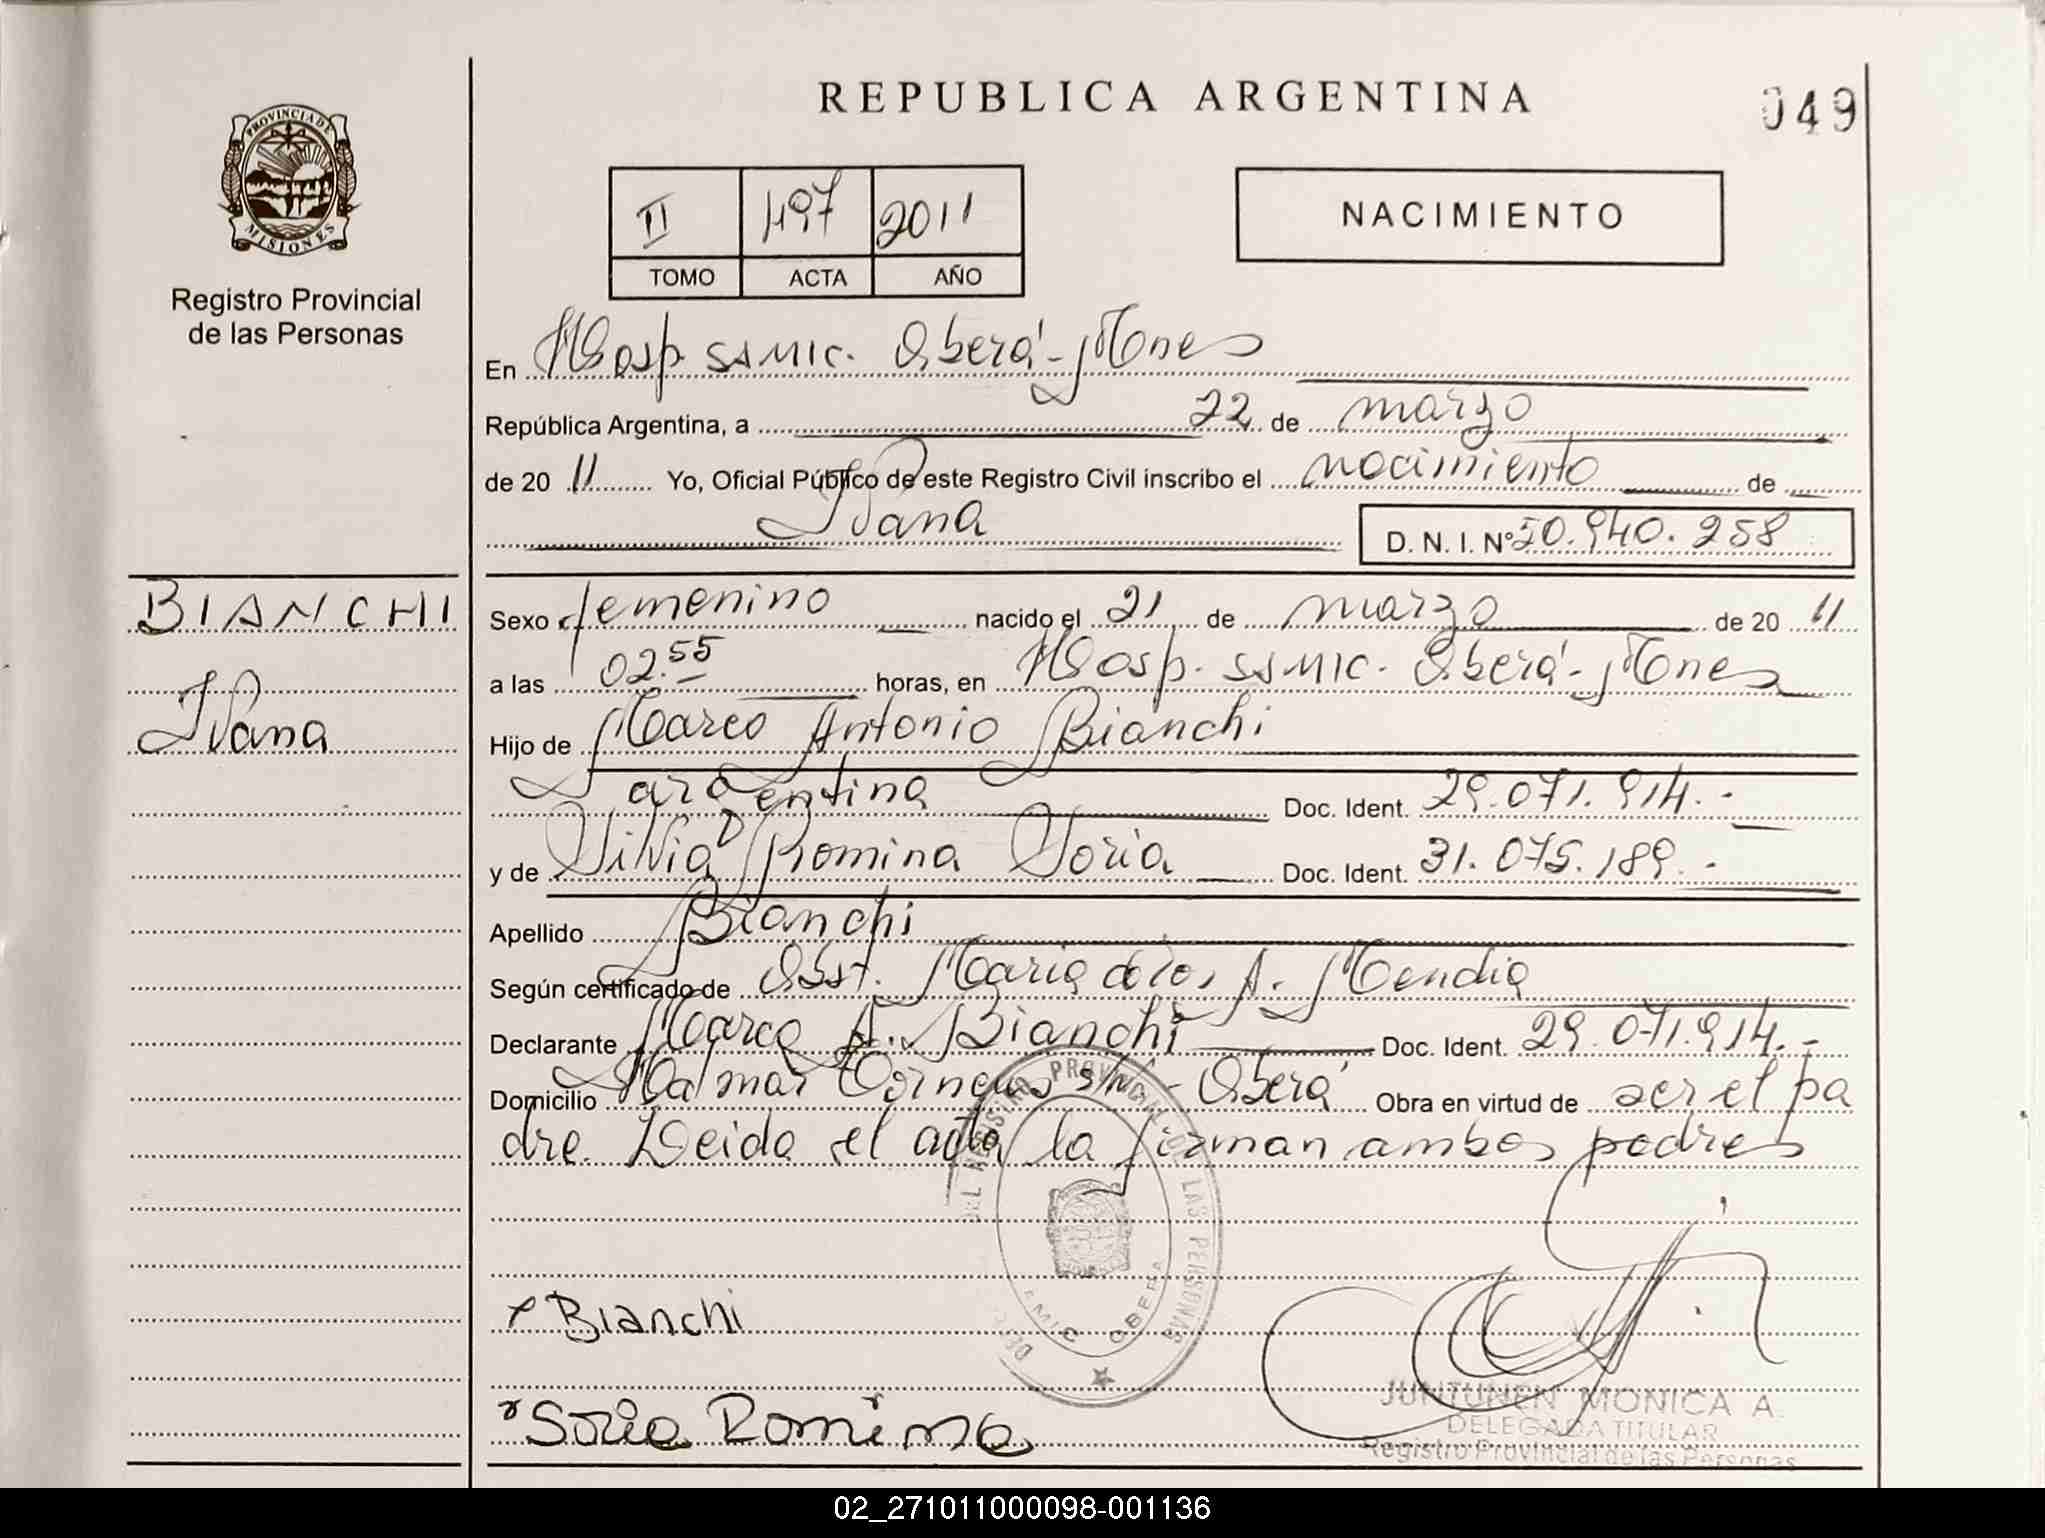 REPUBLICA ARGENTINA
049
PROVINCIA DE
MISIONES
Registro Provincial
de las Personas
II 497 2011
TOMO ACTA AÑO
NACIMIENTO
En Hosp. SSMIC. Oberá-Mnes
República Argentina, a 22 de marzo
de 20 11 Yo, Oficial Público de este Registro Civil inscribo el nacimiento de
Ivana
D. N. I. Nº 50.940.258
BIANCHI
Ivana
Sexo femenino nacido el 21 de marzo de 20 11
a las 02.55 horas, en Hosp. SSMIC. Oberá-Mnes
Hijo de Marco Antonio Bianchi
argentina Doc. Ident. 29.071.914.-
y de Silvia Romina Soria Doc. Ident. 31.075.189.-
Apellido Bianchi
Según certificado de Obst. Maria de los A. Mendia
Declarante Marco A. Bianchi Doc. Ident. 29.071.914.-
Domicilio s/nº - Oberá Obra en virtud de ser el pa
dre. Leida el acta la firman ambos padres
DEL REGISTRO PROVINCIAL DE LAS PERSONAS
OBERA
Bianchi
Soria Romina
JUNTUNEN MONICA A.
DELEGADA TITULAR
Registro Provincial de las Personas
02_271011000098-001136